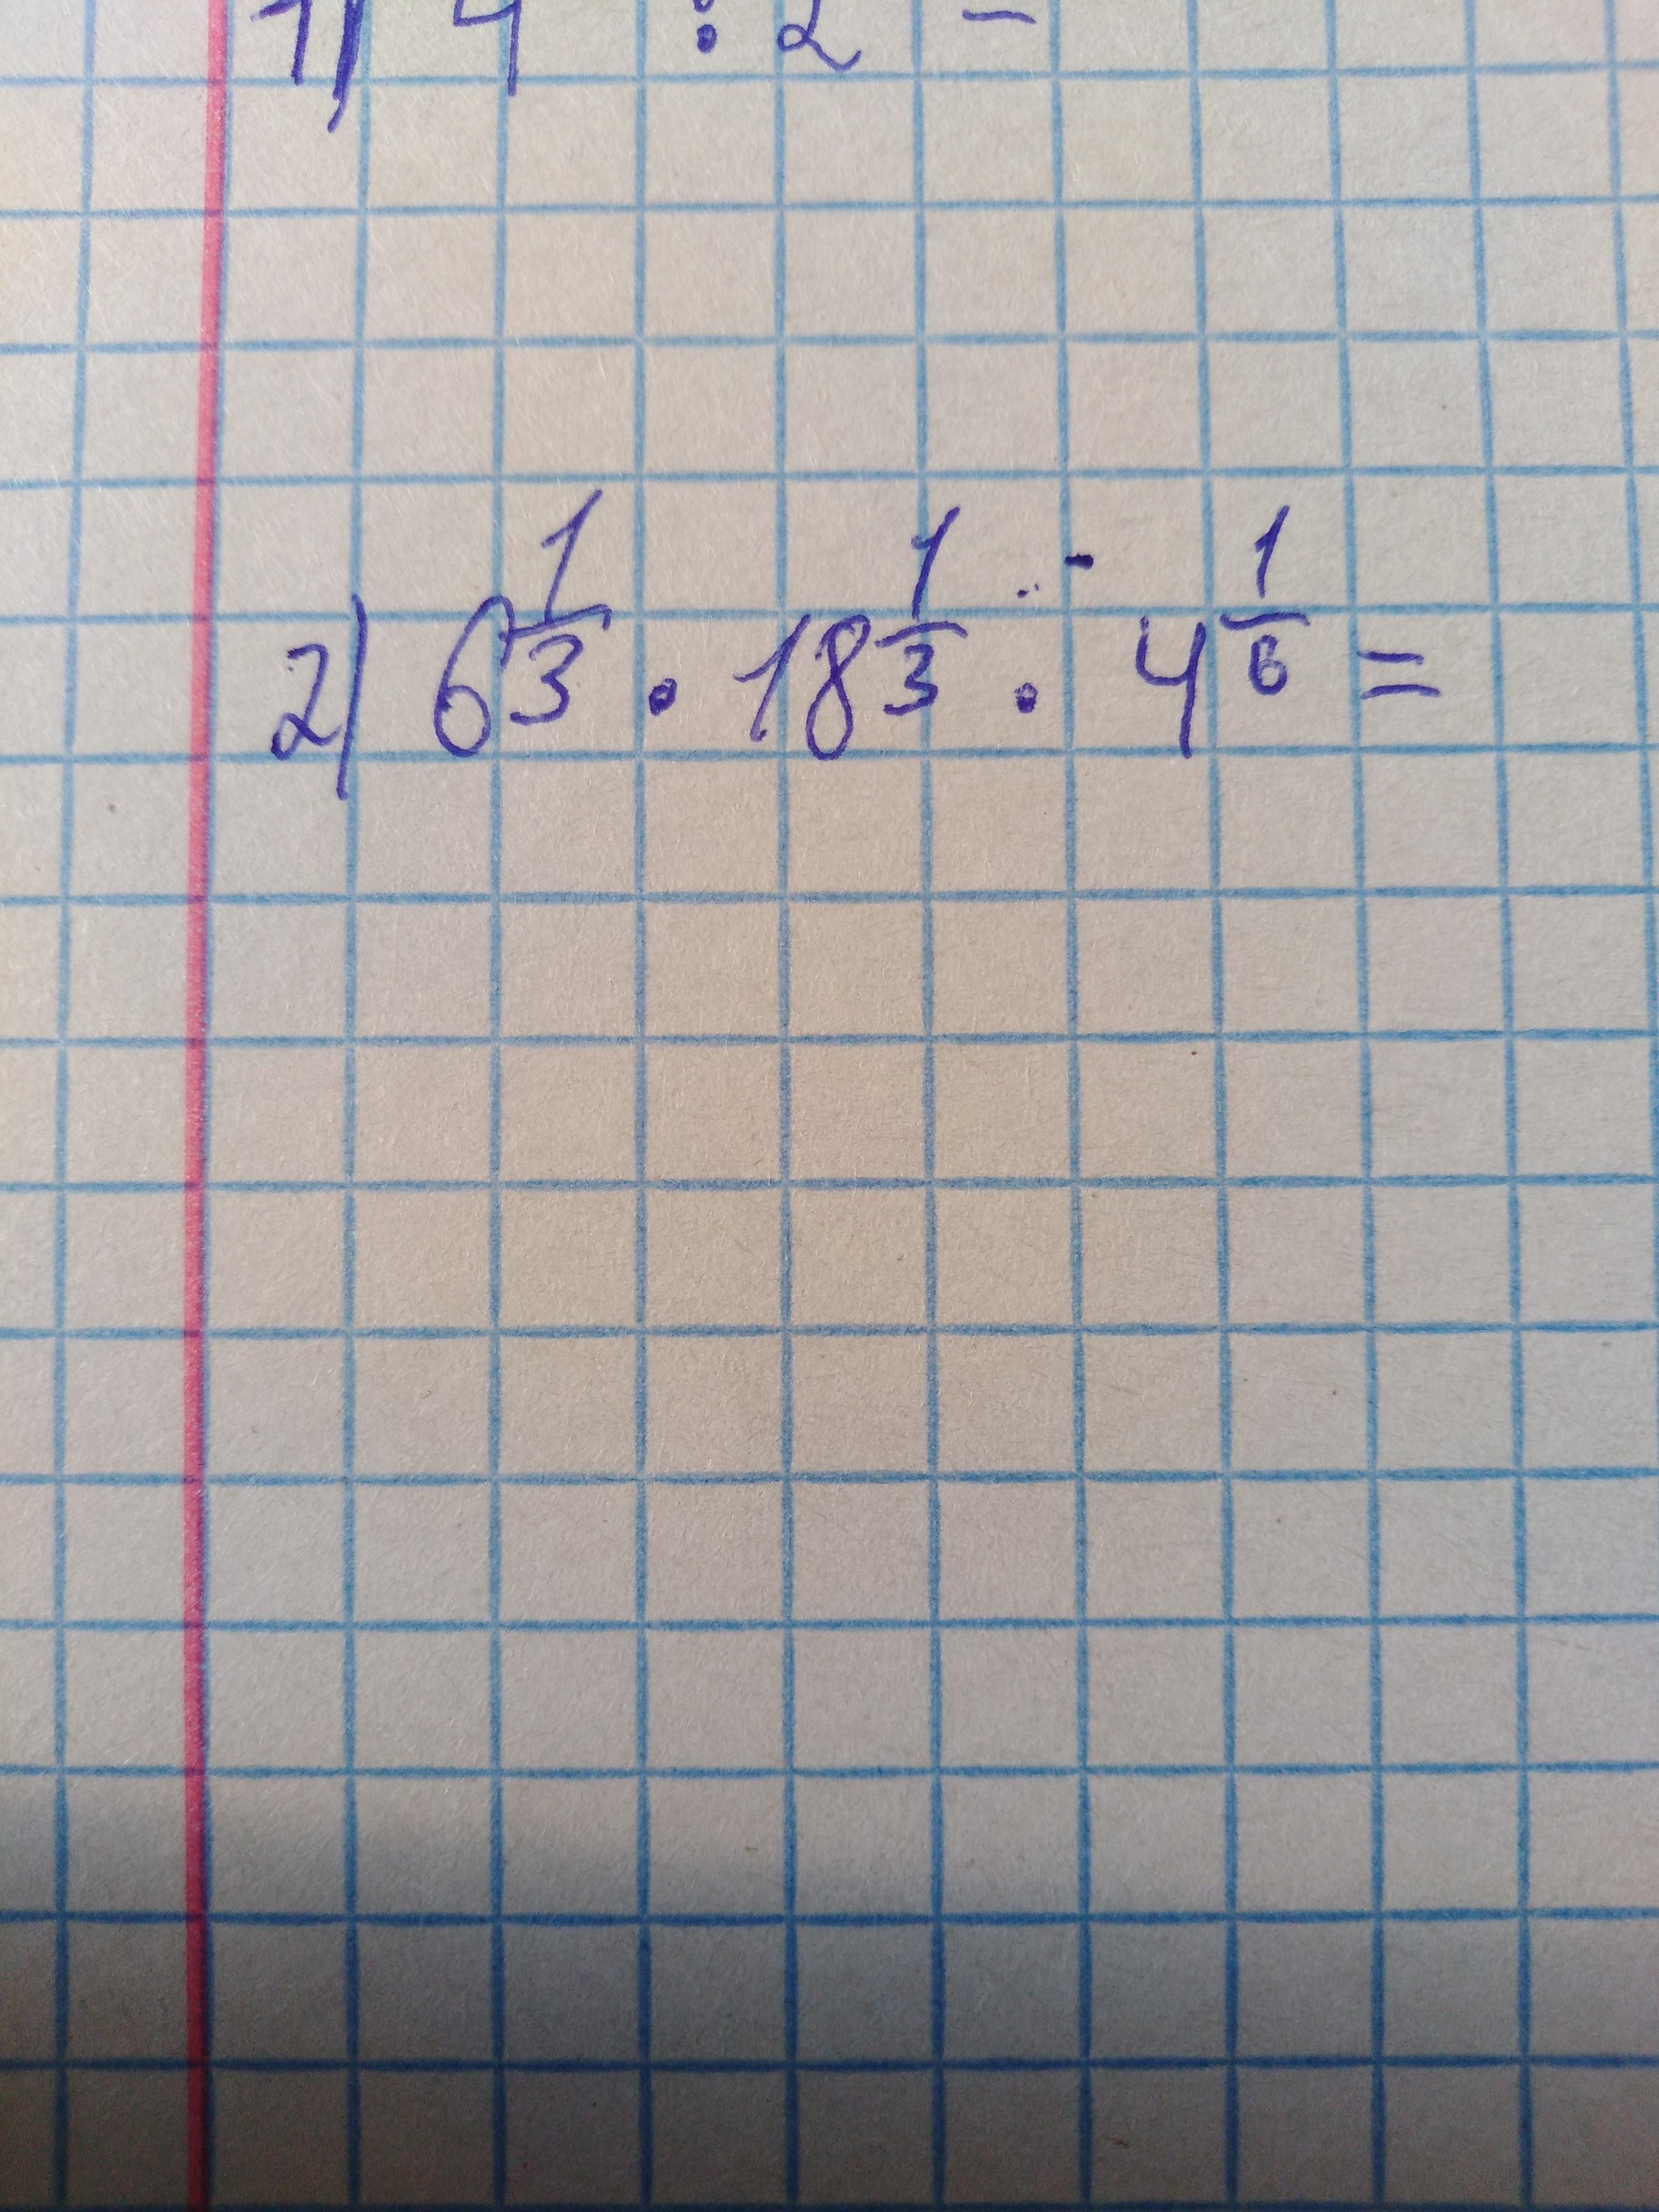 1) 4 : 2 =
2) 6^{1/3} · 18^{1/3} · 4^{1/6} =